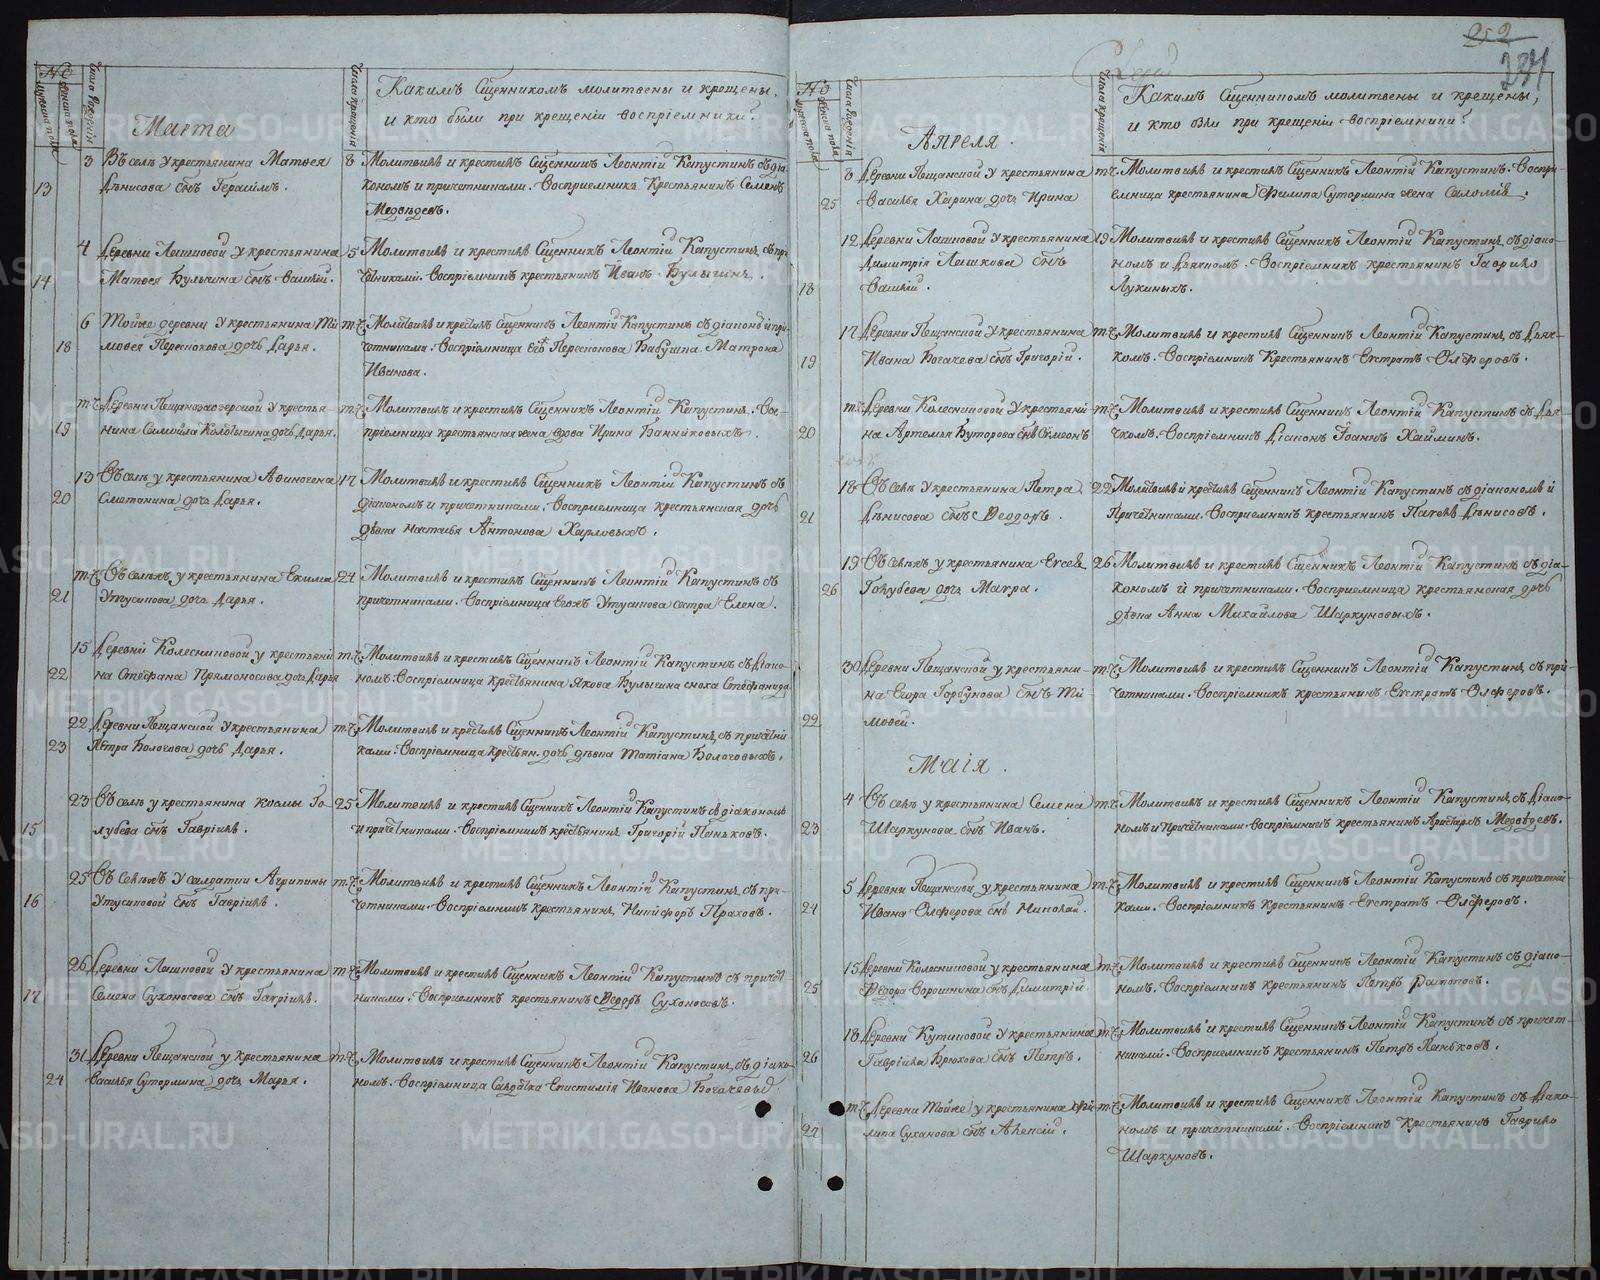 252
237
№
Мужеска пола
Женска пола
Числа рождения
Марта
Числа крещенія
Какимъ Сщенникомъ молитвены и крещены,
и кто были при крещеніи воспріемники?
13
3
Въ селѣ у крестьянина Матвея
Дѣнисова снъ Герасімъ.
8
Молитвилъ и крестилъ Сщенникъ Леонтій Капустинъ съ діа-
кономъ и причетниками. Восприемникъ Крестьянинъ Семенъ
Медвѣдевъ.
14
4
Деревни Лошковой у крестьянина
Матвея Булыгина снъ Василій.
5
Молитвилъ и крестилъ Сщенникъ Леонтій Капустинъ съ при-
четниками. Воспріемникъ крестьянинъ Иванъ Булыгинъ.
18
6
Тойже деревни у крестьянина Ти-
мофея Пересмокова дочь Дарья.
т.ч.
Молитвилъ и крестилъ Сщенникъ Леонтій Капустинъ съ діакономъ и при-
четниками. Воспріемница его Бабушка Матрона
Иванова.
19
т.ч.
Деревни Пещанозаозерской у крестья-
нина Самойла дочь Дарья.
т.ч.
Молитвилъ и крестилъ Сщенникъ Леонтій Капустинъ. Вос-
пріемница крестьянская жена вдова Ирина Банниковыхъ.
20
13
Въ селѣ у крестьянина Афиногена
Сметанина дочь Дарья.
17
Молитвилъ и крестилъ Сщенникъ Леонтій Капустинъ съ
діакономъ и причетниками. Восприемница крестьянская дочь
дѣвка Настасья Антонова Харловыхъ.
21
т.ч.
Въ селѣ у крестьянина Екима
Утусикова дочь Дарья.
24
Молитвилъ и крестилъ Сщенникъ Леонтій Капустинъ съ
причетниками. Воспріемница Утусикова сестра Елена.
22
15
Деревни Колесниковой у крестьяни-
на Стефана Прямоносова дочь Дарья
т.ч.
Молитвилъ и крестилъ Сщенникъ Леонтій Капустинъ съ Діако-
номъ. Воспріемница крестьянина Якова Булыгина сноха Стефанида.
23
22
Деревни Пещанской у крестьянина
Петра Болочова дочь Дарья.
т.ч.
Молитвилъ и крестилъ Сщенникъ Леонтій Капустинъ съ причетни-
ками. Воспріемница крестьян. дочь дѣвка Татіана Болочовыхъ.
15
23
Въ селѣ у крестьянина Космы Го-
лубева снъ Гавріилъ.
25
Молитвилъ и крестилъ Сщенникъ Леонтій Капустинъ съ діакономъ
и причетниками. Воспріемникъ крестьянинъ Григорій Пеньковъ.
16
25
Въ селѣ у солдатки Агрипины
Утусиковой снъ Гавріилъ.
т.ч.
Молитвилъ и крестилъ Сщенникъ Леонтій Капустинъ съ при-
четниками. Воспріемникъ крестьянинъ Никифоръ Праховъ.
17
26
Деревни Лошковой у крестьянина
Семена Сухоносова снъ Гавріилъ.
т.ч.
Молитвилъ и крестилъ Сщенникъ Леонтій Капустинъ съ причет-
никами. Восприемникъ крестьянинъ Ѳедоръ Сухоносовъ.
24
31
Деревни Пещанской у крестьянина
Василья Сутормина дочь Марья.
т.ч.
Молитвилъ и крестилъ Сщенникъ Леонтій Капустинъ съ діако-
номъ. Воспріемница Салдатка Епистимія Иванова Богачевых.
№
Мужеска пола
Женска пола
Числа рожденія
Апреля.
Числа крещенія
Какимъ Сщенникомъ молитвены и крещены,
и кто были при крещеніи воспріемники?
25
8
Деревни Пещанской у крестьянина
Василья Хаирина дочь Ирина
т.ч.
Молитвилъ и крестилъ Сщенникъ Леонтій Капустинъ. Воспри-
емница крестьянина Филипа Сутормина жена Саломія.
18
12
Деревни Лашковой у крестьянина
Димитрія Лошкова снъ
Василій.
13
Молитвилъ и крестилъ Сщенникъ Леонтій Капустинъ съ діако-
номъ и дьячкомъ. Воспріемникъ крестьянинъ Гаврило
Лукиныхъ.
19
17
Деревни Пещанской у крестьянина
Ивана Богачева снъ Григорій.
т.ч.
Молитвилъ и крестилъ Сщенникъ Леонтій Капустинъ съ дьяч-
комъ. Воспріемникъ Крестьянинъ Евстратъ Олферовъ.
20
т.ч.
Деревни Колесниковой у крестьяни-
на Артемья Буторова снъ Симеонъ
т.ч.
Молитвилъ и крестилъ Сщенникъ Леонтій Капустинъ съ Дья-
чкомъ. Воспріемникъ Діаконъ Іоаннъ Хайминъ.
21
18
Въ селѣ у крестьянина Петра
Дѣнисова снъ Ѳеодоръ.
22
Молитвилъ и крестилъ Сщенникъ Леонтій Капустинъ съ діакономъ и
Причетниками. Воспріемникъ крестьянинъ Павелъ Дѣнисовъ.
26
19
Въ селѣ у крестьянина Евсея
Голубева дочь Мавра.
26
Молитвилъ и крестилъ Сщенникъ Леонтій Капустинъ съ діа-
кономъ и причетниками. Восприемница крестьянская дочь
дѣвка Анна Михайлова Шаркуновыхъ.
22
30
Деревни Пещанской у крестьяни-
на Егора Горбунова снъ Ти-
мофей.
т.ч.
Молитвилъ и крестилъ Сщенникъ Леонтій Капустинъ съ при-
четниками. Воспріемникъ крестьянинъ Евстратъ Олферовъ.
Маія.
23
4
Въ селѣ у крестьянина Семена
Шаркунова снъ Иванъ.
т.ч.
Молитвилъ и крестилъ Сщенникъ Леонтій Капустинъ съ Діако-
номъ и Причетниками. Воспріемникъ крестьянинъ Аристархъ Медвѣдевъ.
24
5
Деревни Пещанской у крестьянина
Ивана Олферова снъ Николай.
т.ч.
Молитвилъ и крестилъ Сщенникъ Леонтій Капустинъ съ причетни-
ками. Воспріемникъ Крестьянинъ Евстратъ Олферовъ.
25
15
Деревни Колесниковой у крестьянина
Ѳедора Ворошнина снъ Димитрій
т.ч.
Молитвилъ и крестилъ Сщенникъ Леонтій Капустинъ съ діако-
номъ. Воспріемникъ крестьянинъ Петръ
26
18
Деревни Кутиковой у крестьянина
Гаврійла Брюхова снъ Петръ.
т.ч.
Молитвилъ и крестилъ Сщенникъ Леонтій Капустинъ съ причет-
никами. Восприемникъ крестьянинъ Петръ Пеньковъ.
27
т.ч.
Деревни Тойже у крестьянина Фи-
липа Суханова снъ Алексій.
т.ч.
Молитвилъ и крестилъ Сщенникъ Леонтій Капустинъ съ Діако-
номъ и причетниками. Воспріемникъ Крестьянинъ Гаврило
Шаркуновъ.
METRIKI.GASO-URAL.RU